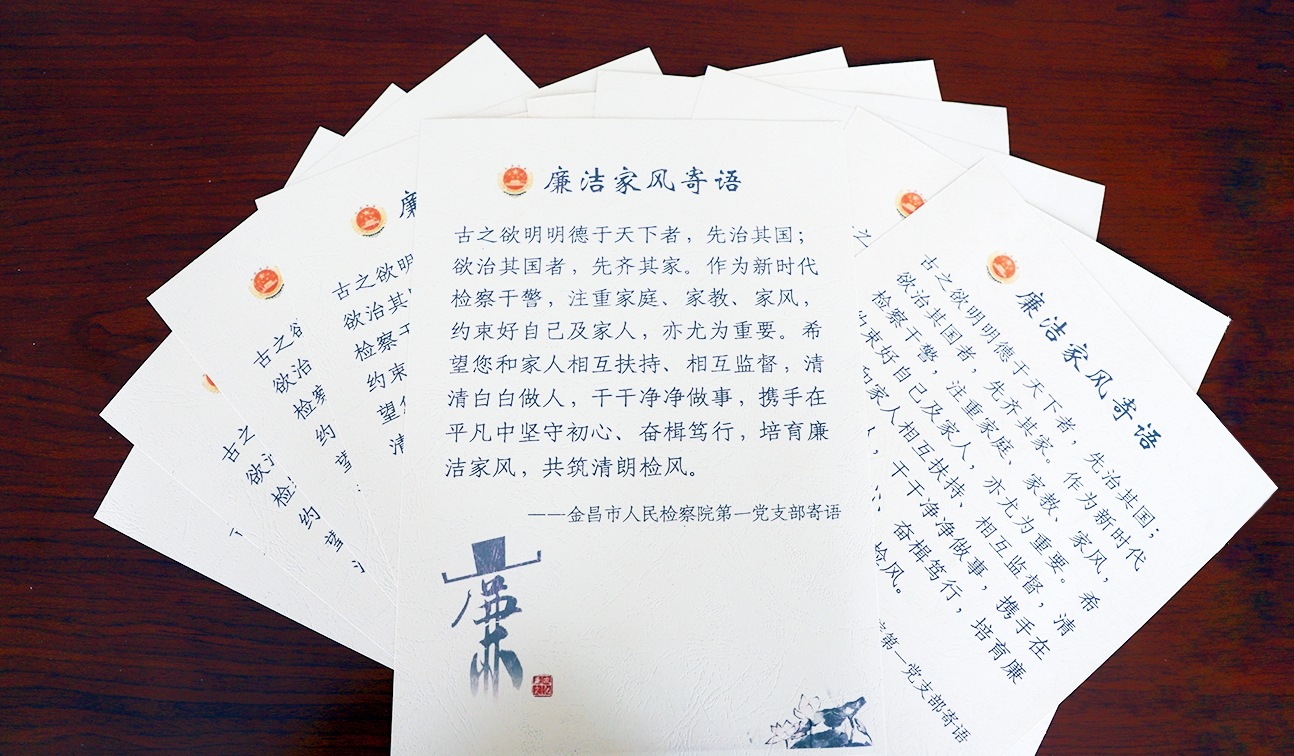 廉洁家风寄语
古之欲明明德于天下者，先治其国；
欲治其国者，先齐其家。作为新时代
检察干警，注重家庭、家教、家风，
约束好自己及家人，亦尤为重要。希
望您和家人相互扶持、相互监督，清
清白白做人，干干净净做事，携手在
平凡中坚守初心、奋楫笃行，培育廉
洁家风，共筑清朗检风。
——金昌市人民检察院第一党支部寄语
廉
廉洁家风寄语
古之欲明明德于天下者，先治其国；
欲治其国者，先齐其家。作为新时代
检察干警，注重家庭、家教、家风，
约束好自己及家人，亦尤为重要。希
和家人相互扶持、相互监督，清
干干净净做事，携手在
奋楫笃行，培育廉
检风。
第一党支部寄语
古之欲明
欲治其
检察干
约束
望
清
古之
欲治
检察
约
望
古之
欲
检
约
望